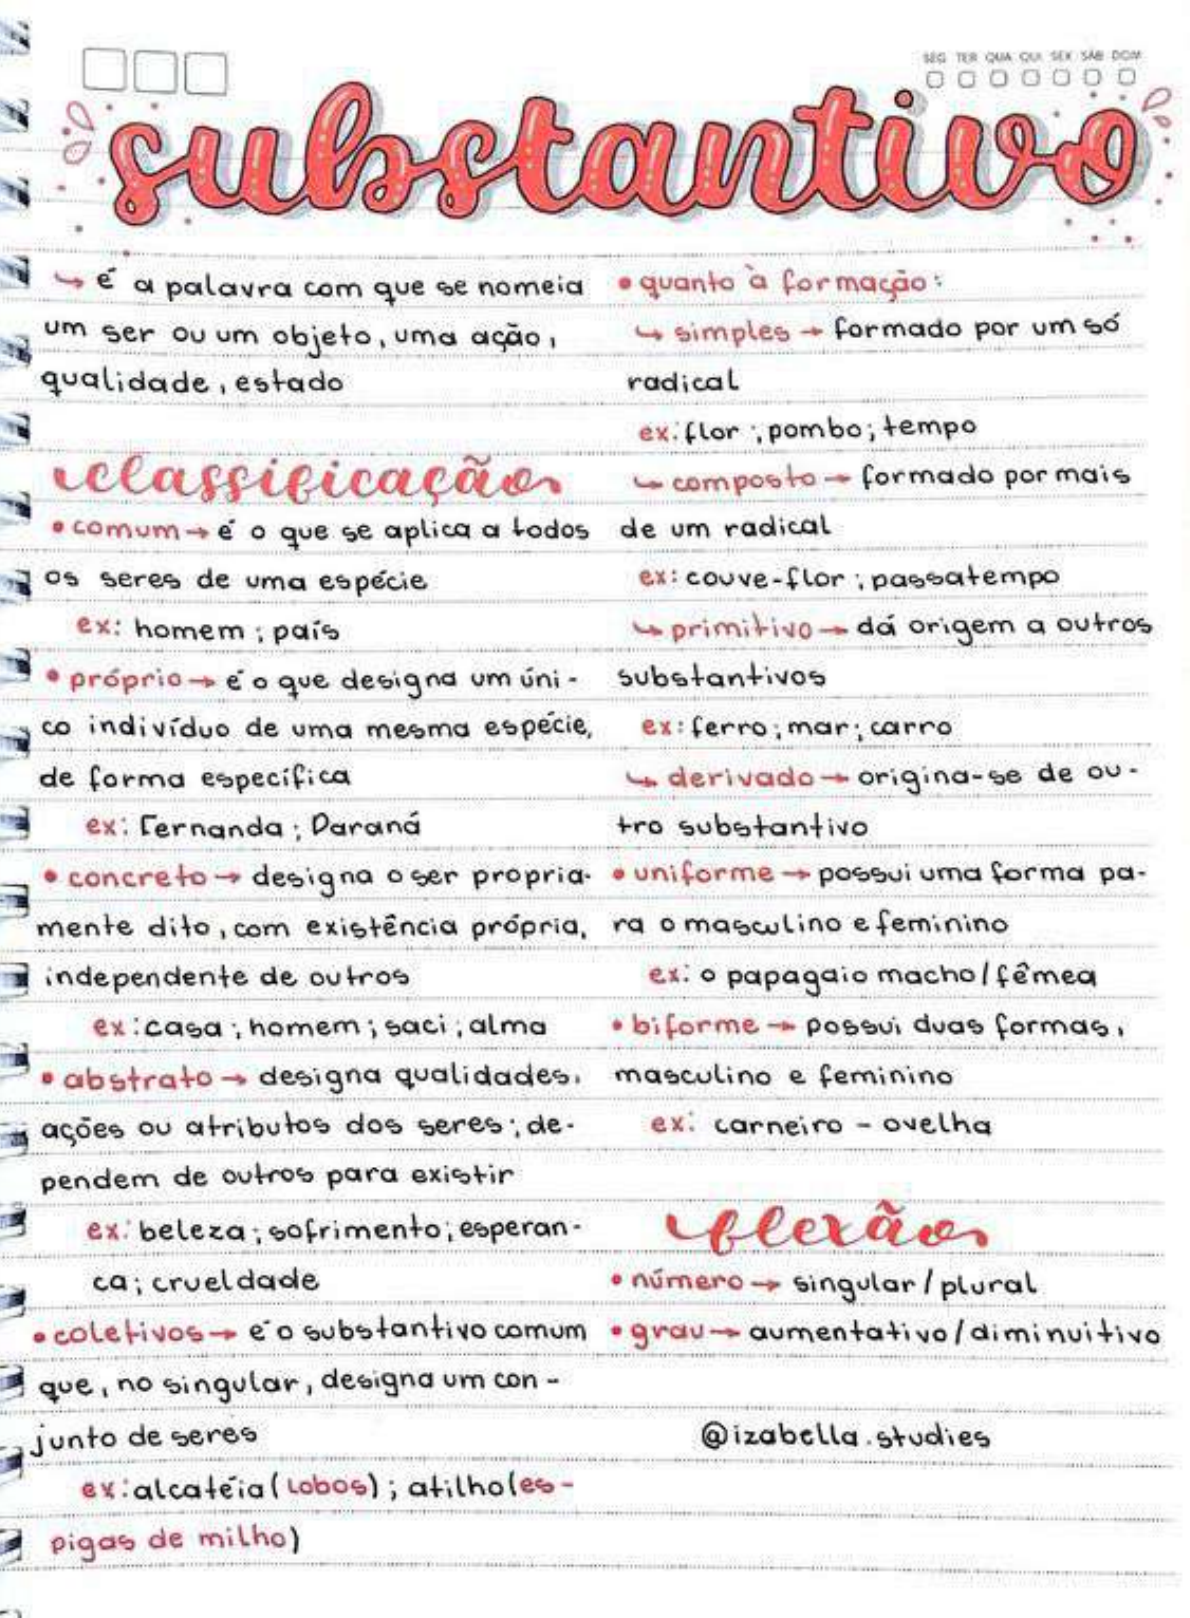 SEG TER QUA QUI SEX SÁB DOM
substantivo
↳ é a palavra com que se nomeia
um ser ou um objeto, uma ação,
qualidade, estado
classificação
• comum → é o que se aplica a todos
os seres de uma espécie
ex: homem; país
• próprio → é o que designa um úni-
co indivíduo de uma mesma espécie,
de forma específica
ex: Fernanda; Paraná
• concreto → designa o ser propria-
mente dito, com existência própria,
independente de outros
ex: casa; homem; saci; alma
• abstrato → designa qualidades,
ações ou atributos dos seres; de-
pendem de outros para existir
ex: beleza; sofrimento; esperan-
ca; crueldade
• coletivos → é o substantivo comum
que, no singular, designa um con-
junto de seres
ex: alcatéia (lobos); atilho (es-
pigas de milho)
• quanto à formação:
↳ simples → formado por um só
radical
ex: flor; pombo; tempo
↳ composto → formado por mais
de um radical
ex: couve-flor; passatempo
↳ primitivo → dá origem a outros
substantivos
ex: ferro; mar; carro
↳ derivado → origina-se de ou-
tro substantivo
• uniforme → possui uma forma pa-
ra o masculino e feminino
ex: o papagaio macho/fêmea
• biforme → possui duas formas,
masculino e feminino
ex: carneiro - ovelha
flexão
• número → singular/plural
• grau → aumentativo/diminuitivo
@izabella.studies